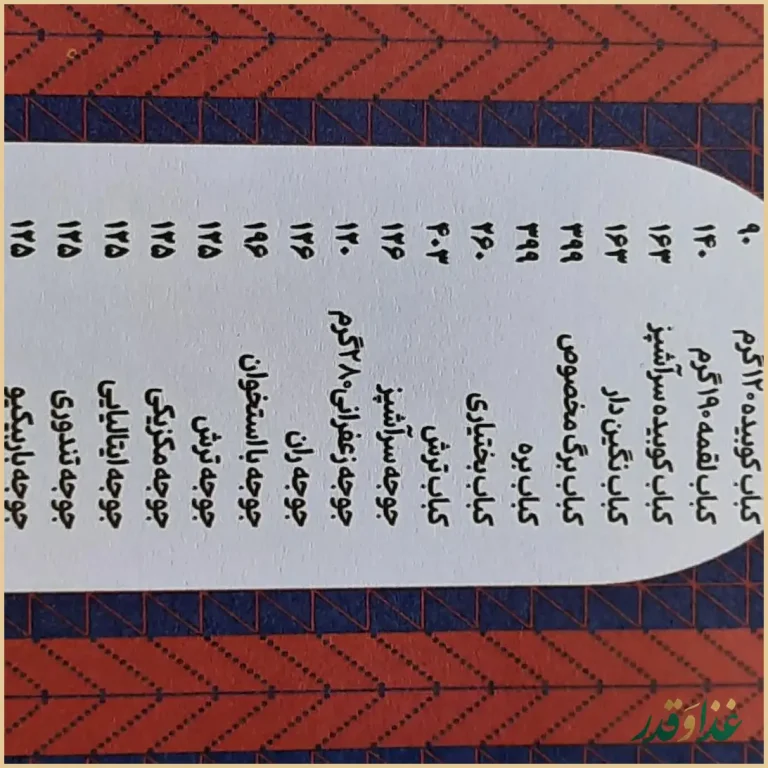 کباب کوبیده ۱۲۰ گرم ۹۰
کباب لقمه ۱۹۰ گرم ۱۴۰
کباب کوبیده سرآشپز ۱۶۳
کباب نگین دار ۱۶۳
کباب برگ مخصوص ۳۹۹
کباب بره ۳۹۹
کباب بختیاری ۲۶۰
کباب ترش ۴۰۳
جوجه سرآشپز ۱۲۶
جوجه زعفرانی ۲۸۰ گرم ۱۲۰
جوجه ران ۱۲۶
جوجه با استخوان ۱۹۶
جوجه ترش ۱۲۵
جوجه مکزیکی ۱۲۵
جوجه ایتالیایی ۱۲۵
جوجه تندوری ۱۲۵
جوجه باربیکیو ۱۲۵
غذا و قدر